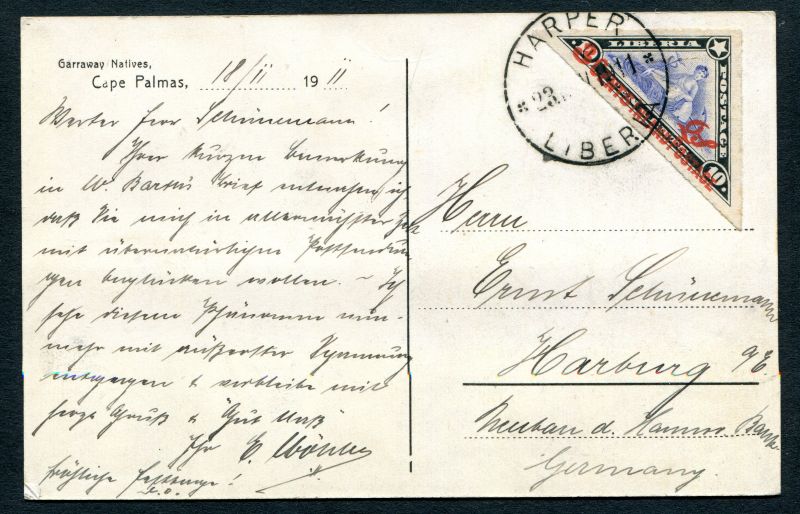 Garraway Natives,
Cape Palmas, 18/II 1911
Werter Herr Schünemann!
Ihrer kurzen Bemerkung
in W. Brief entnehme ich
daß Sie mich in allernächster Zeit
mit übernatürlichen Postsendun-
gen beglücken wollen. – Ich
sehe diesem Phänomen nun-
mehr mit äußerster Spannung
entgegen & verbleibe mit
herzl. Gruß & "Gut Naß"
Ihr E.
fröhliche Festtage!
HARPER
23
11
LIBER
LIBERIA
POSTAGE
10
Herrn
Ernst Schünemann
Harburg a/E.
Neubau d. Hannov. Bank
Germany.